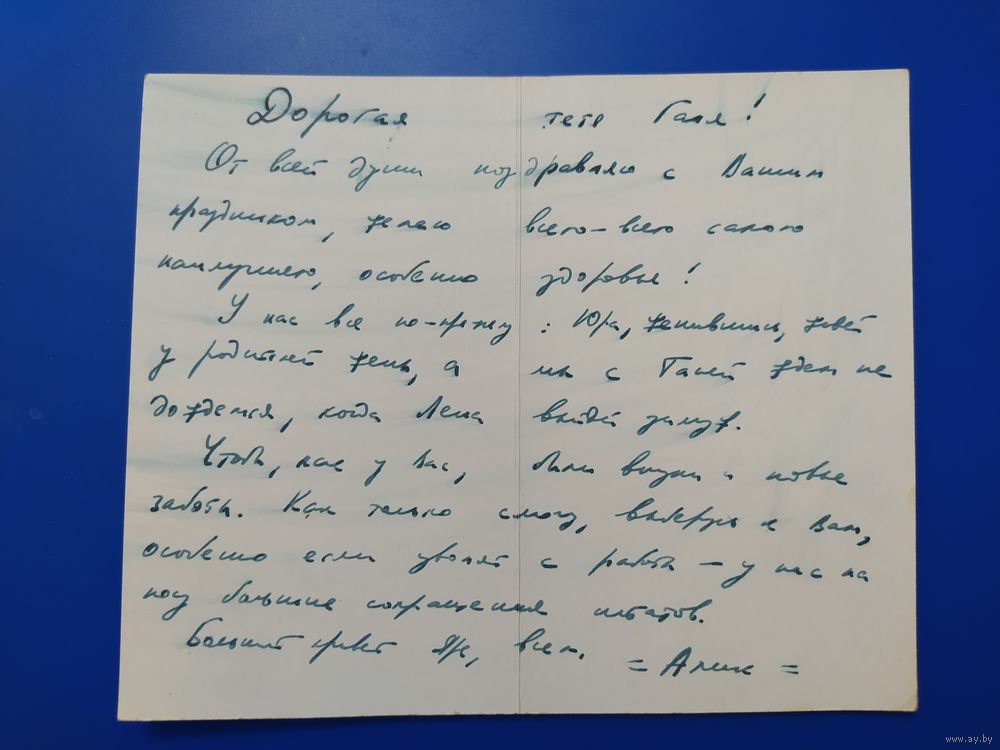 Дорогая тетя Галя!
От всей души поздравляю с Вашим
праздником, желаю всего-всего самого
наилучшего, особенно здоровья!
У нас все по-прежнему: Юра, женившись, живёт
у родителей жены, а мы с Таней ждем не
дождемся, когда Лена выйдет замуж.
Чтобы, как у Вас, были внуки и новые
заботы. Как только смогу, выберусь к Вам,
особенно если уволят с работы – у нас на
носу большие сокращения штатов.
Большой привет всем.
= Алик =
www.ay.by